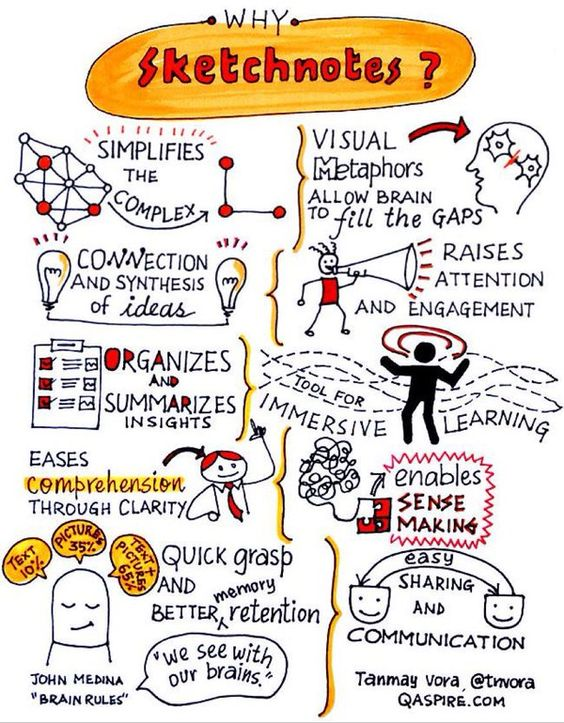 WHY
Sketchnotes ?
SIMPLIFIES
THE
COMPLEX
VISUAL
Metaphors
ALLOW BRAIN
TO fill the GAPS
CONNECTION
AND SYNTHESIS
of ideas
RAISES
ATTENTION
AND ENGAGEMENT
ORGANIZES
AND
SUMMARIZES
INSIGHTS
TOOL FOR
IMMERSIVE LEARNING
EASES
comprehension
THROUGH CLARITY
enables
SENSE
MAKING
TEXT
10%
PICTURES
35%
TEXT +
PICTURES
65%
QUICK grasp
AND memory
BETTER retention
"we see with
our brains."
JOHN MEDINA
"BRAIN RULES"
easy
SHARING
AND
COMMUNICATION
Tanmay Vora, @tnvora
QASPIRE.COM